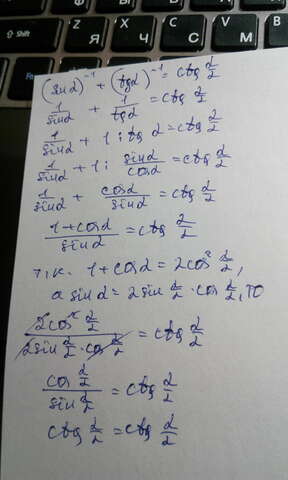 Shift Я Ч С М
Z X C V
(sin α)⁻¹ + (tg α)⁻¹ = ctg α/2
1/sin α + 1/tg α = ctg α/2
1/sin α + 1 : tg α = ctg α/2
1/sin α + 1 : sin α/cos α = ctg α/2
1/sin α + cos α/sin α = ctg α/2
1+cos α/sin α = ctg α/2
т.к. 1 + cos α = 2cos² α/2,
а sin α = 2sin α/2 · cos α/2, то
2cos² α/2 / 2sin α/2 · cos α/2 = ctg α/2
cos α/2 / sin α/2 = ctg α/2
ctg α/2 = ctg α/2